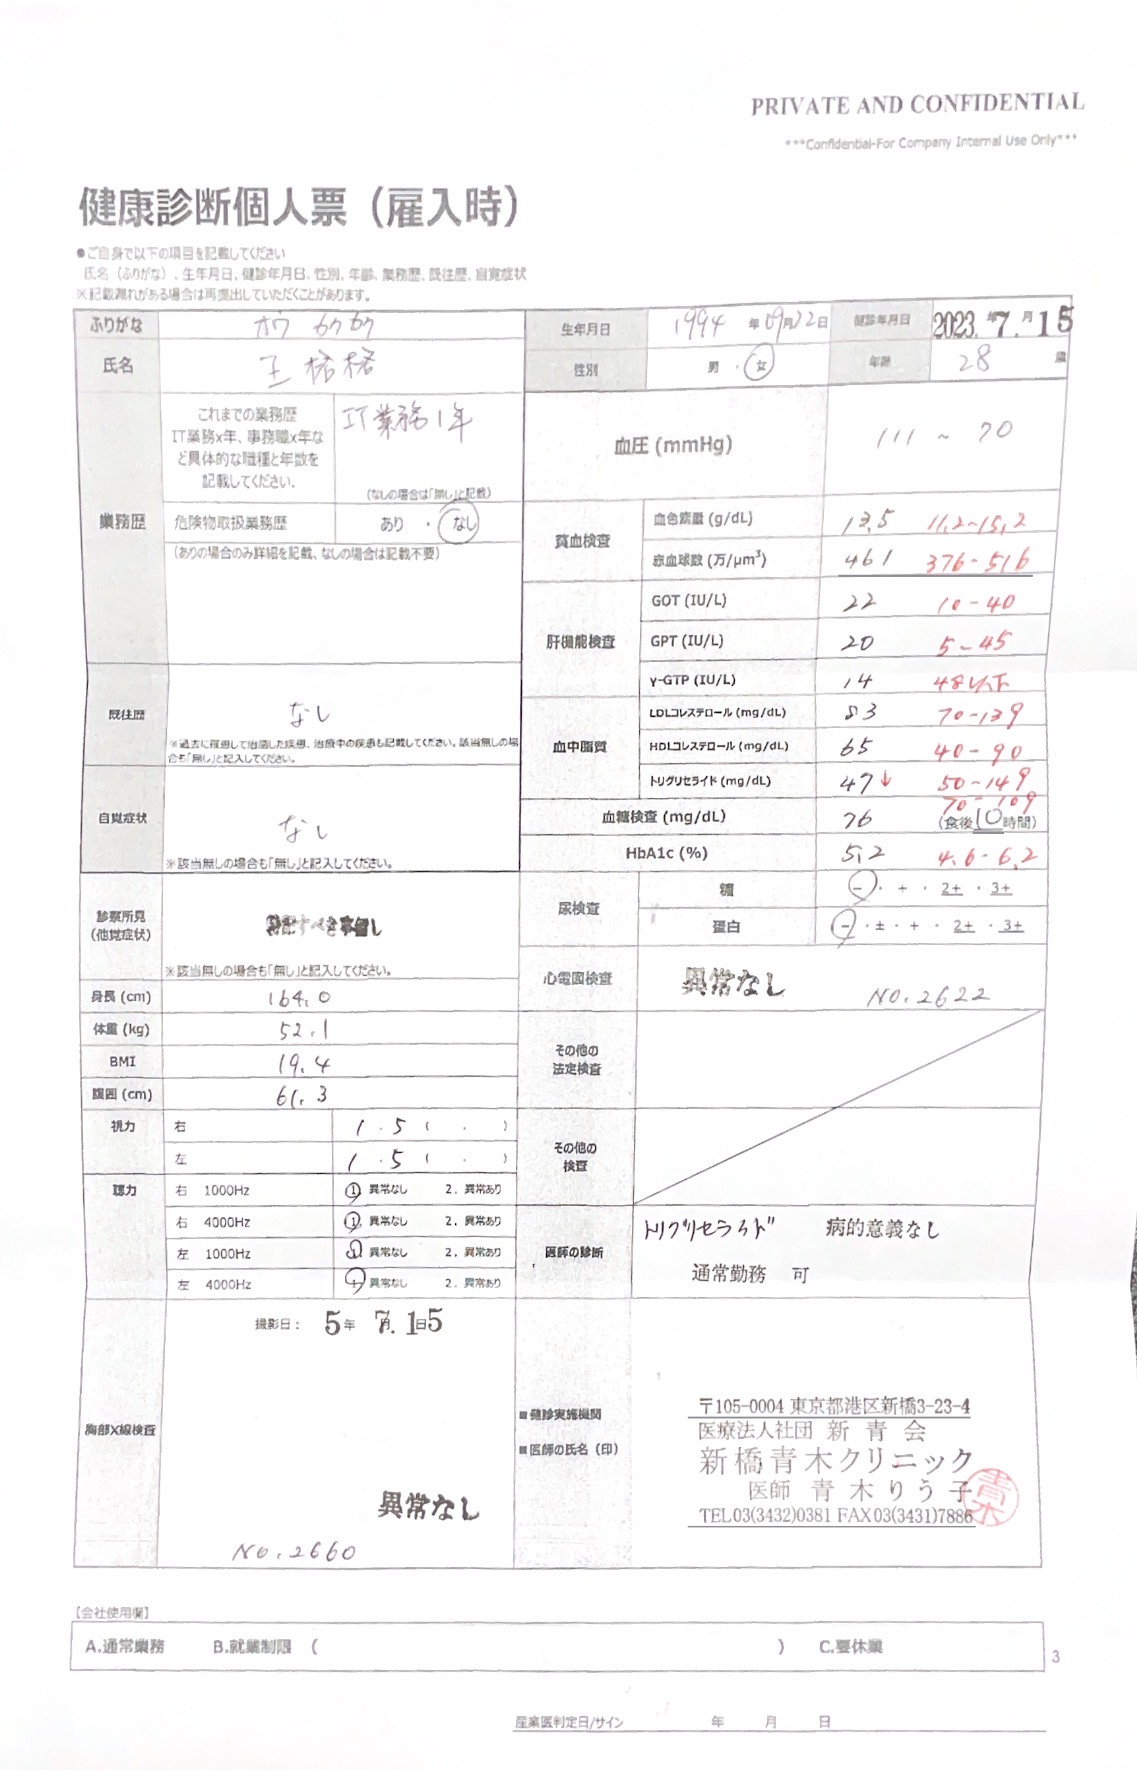 PRIVATE AND CONFIDENTIAL
***Confidential-For Company Internal Use Only***
健康診断個人票（雇入時）
●ご自身で以下の項目を記載してください
氏名（ふりがな）、生年月日、健診年月日、性別、年齢、業務歴、既往歴、自覚症状
※記載漏れがある場合は再提出していただくことがあります。
ふりがな オウ カクカク
生年月日 1994 年 09月22日
健診年月日 2023. 年7. 月15
氏名 王 格格
性別 男 ・ 女
年齢 28 歳
業務歴
これまでの業務歴
IT業務x年、事務職x年な
ど具体的な職種と年数を
記載してください。
IT業務1年
（なしの場合は「無し」と記載）
危険物取扱業務歴 あり ・ なし
（ありの場合のみ詳細を記載、なしの場合は記載不要）
既往歴 なし
※過去に罹患して治癒した疾患、治療中の疾患も記載してください。該当無しの場
合も「無し」と記入してください。
自覚症状 なし
※該当無しの場合も「無し」と記入してください。
診察所見
（他覚症状）
特記すべき事無し
※該当無しの場合も「無し」と記入してください。
身長 (cm) 164.0
体重 (kg) 52.1
BMI 19.4
腹囲 (cm) 61.3
視力 右 1 . 5 ( . )
左 1 . 5 ( . )
聴力 右 1000Hz 1 異常なし 2. 異常あり
右 4000Hz 1 異常なし 2. 異常あり
左 1000Hz 1 異常なし 2. 異常あり
左 4000Hz 1 異常なし 2. 異常あり
胸部X線検査
撮影日： 5年 7月. 15日
異常なし
No. 2660
血圧 (mmHg) 111 ~ 70
貧血検査
血色素量 (g/dL) 13.5 11.2~15.2
赤血球数 (万/μm³) 461 376-516
肝機能検査
GOT (IU/L) 22 10-40
GPT (IU/L) 20 5-45
γ-GTP (IU/L) 14 48以下
血中脂質
LDLコレステロール (mg/dL) 83 70-139
HDLコレステロール (mg/dL) 65 40-90
トリグリセライド (mg/dL) 47↓ 50-149
血糖検査 (mg/dL) 76 70-109
(食後10時間)
HbA1c (%) 5.2 4.6-6.2
尿検査
糖 - ・ + ・ 2+ ・ 3+
蛋白 - ・ ± ・ + ・ 2+ ・ 3+
心電図検査 異常なし No. 2622
その他の
法定検査
その他の
検査
医師の診断
トリグリセライド 病的意義なし
通常勤務 可
■健診実施機関
■医師の氏名（印）
〒105-0004 東京都港区新橋3-23-4
医療法人社団 新青会
新橋青木クリニック
医師 青木りう子
青木
TEL03(3432)0381 FAX03(3431)7886
【会社使用欄】
A.通常業務 B.就業制限（ ） C.要休業
3
産業医判定日/サイン 年 月 日